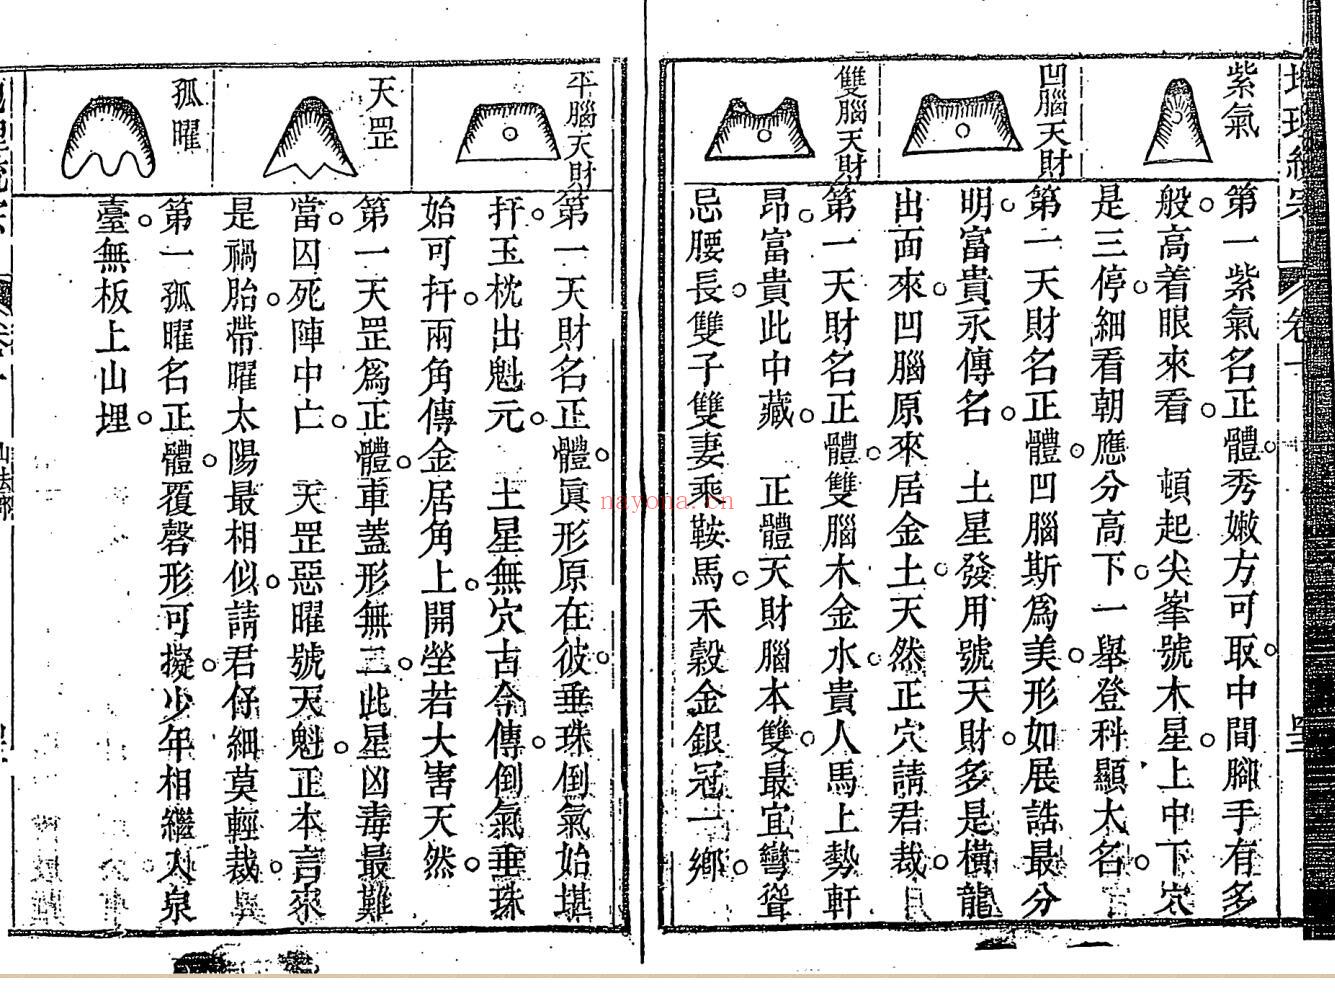 紫氣
第一紫氣名正體秀嫩方可取中間腳手有多
般高着眼來看　頓起尖峯號木星上中下穴
是三停細看朝應分高下一舉登科顯大名
凹腦天財
第一天財名正體凹腦斯爲美形如展誥最分
明富貴永傳名　土星發用號天財多是橫龍
出面來凹腦原來居金土天然正穴請君裁
雙腦天財
第一天財名正體雙腦木金水貴人馬上勢軒
昂富貴此中藏　正體天財腦本雙最宜彎聳
忌腰長雙子雙妻乘鞍馬禾穀金銀冠一鄉
平腦天財
第一天財名正體眞形原在彼垂珠倒氣始堪
扦玉枕出魁元　土星無穴古今傳倒氣垂珠
始可扦兩角傳金居角上開塋若大害天然
天罡
第一天罡爲正體車蓋形無二此星凶毒最難
當囚死陣中亡　天罡惡曜號天魁正本言來
是禍胎帶曜太陽最相似請君仔細莫輕裁
孤曜
第一孤曜名正體覆磬形可擬少年相繼入泉
臺無板上山埋
nayona.cn